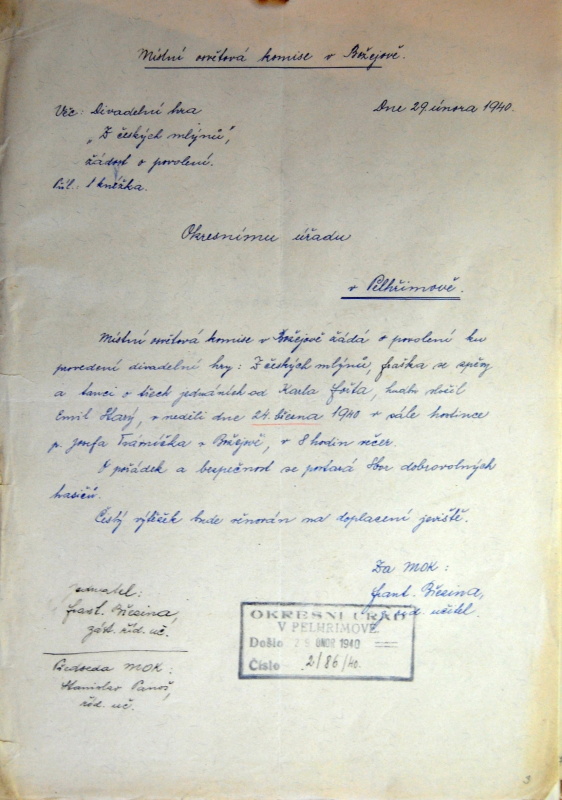 Místní osvětová komise v Božejově.
Věc: Divadelní hra
Dne 29. února 1940.
„Z českých mlýnů",
žádost o povolení.
Příl.: 1 knížka.
Okresnímu úřadu
v Pelhřimově.
Místní osvětová komise v Božejově žádá o povolení ku
provedení divadelní hry: Z českých mlýnů, fraška se zpěvy
a tanci o třech jednáních od Karla Fořta, hudbu složil
Emil Starý, v neděli dne 24. března 1940 v sále hostince
p. Josefa Trávníčka v Božejově, v 8 hodin večer.
O pořádek a bezpečnost se postará Sbor dobrovolných
hasičů.
Čistý výtěžek bude věnován na doplacení jeviště.
Za MOK:
Frant. Březina,
říd. učitel.
Jednatel:
Frant. Březina,
zást. říd. uč.
Předseda MOK:
Stanislav Panoš,
říd. uč.
OKRESNÍ ÚŘAD
V PELHŘIMOVĚ
Došlo 29 ÚNOR 1940
Číslo 2/86/40.
3